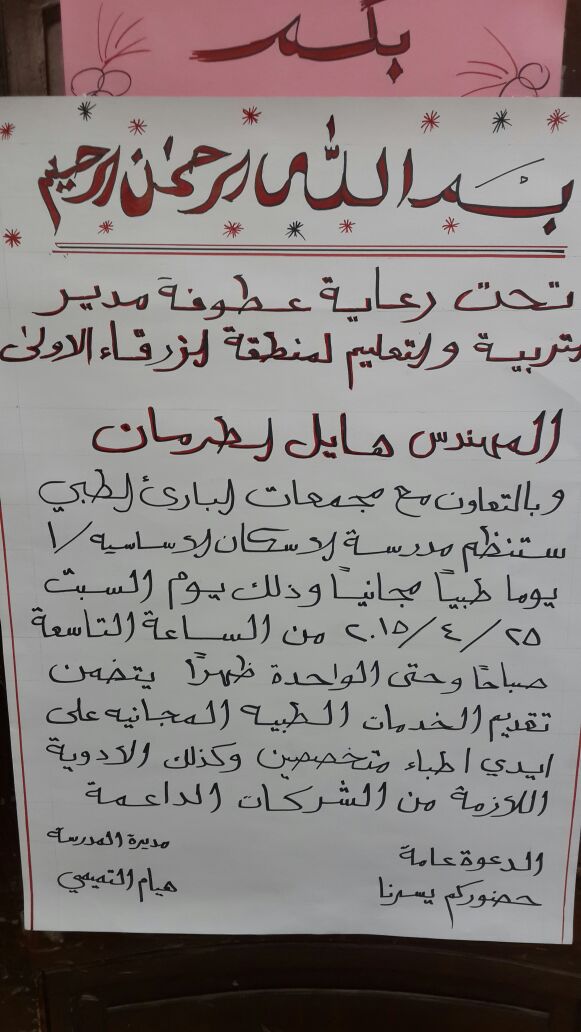 بكم
بسم الله الرحمن الرحيم
تحت رعاية عطوفة مدير
التربية والتعليم لمنطقة الزرقاء الاولى
المهندس هايل الطرمان
وبالتعاون مع مجمعات البارئ الطبي
ستنظم مدرسة الاسكان الاساسيه /١
يوما طبياً مجانياً وذلك يوم السبت
٢٠١٥/٤/٢٥ من الساعة التاسعة
صباحاً وحتى الواحدة ظهراً يتضمن
تقديم الخدمات الطبيه المجانيه على
ايدي اطباء متخصصين وكذلك الأدوية
اللازمة من الشركات الداعمة
الدعوة عامة
حضوركم يسرنا
مديرة المدرسه
هيام التميمي